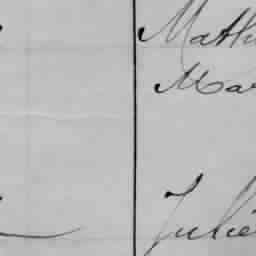 Mathi
Mar
Julie